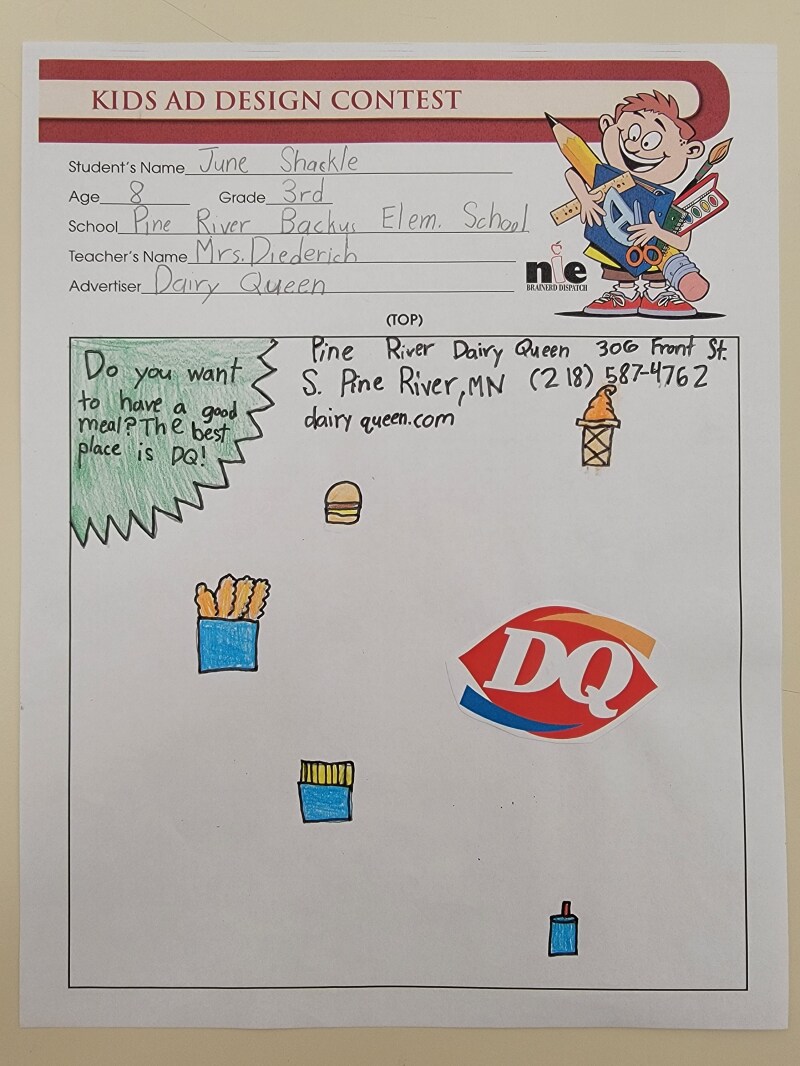 KIDS AD DESIGN CONTEST
Student's Name June Shackle
Age 8 Grade 3rd
School Pine River Backus Elem. School
Teacher's Name Mrs. Diederich
Advertiser Dairy Queen
nie
BRAINERD DISPATCH
(TOP)
Do you want
to have a good
meal? The best
place is DQ!
Pine River Dairy Queen 306 Front St.
S. Pine River, MN (218) 587-4762
dairy queen.com
DQ